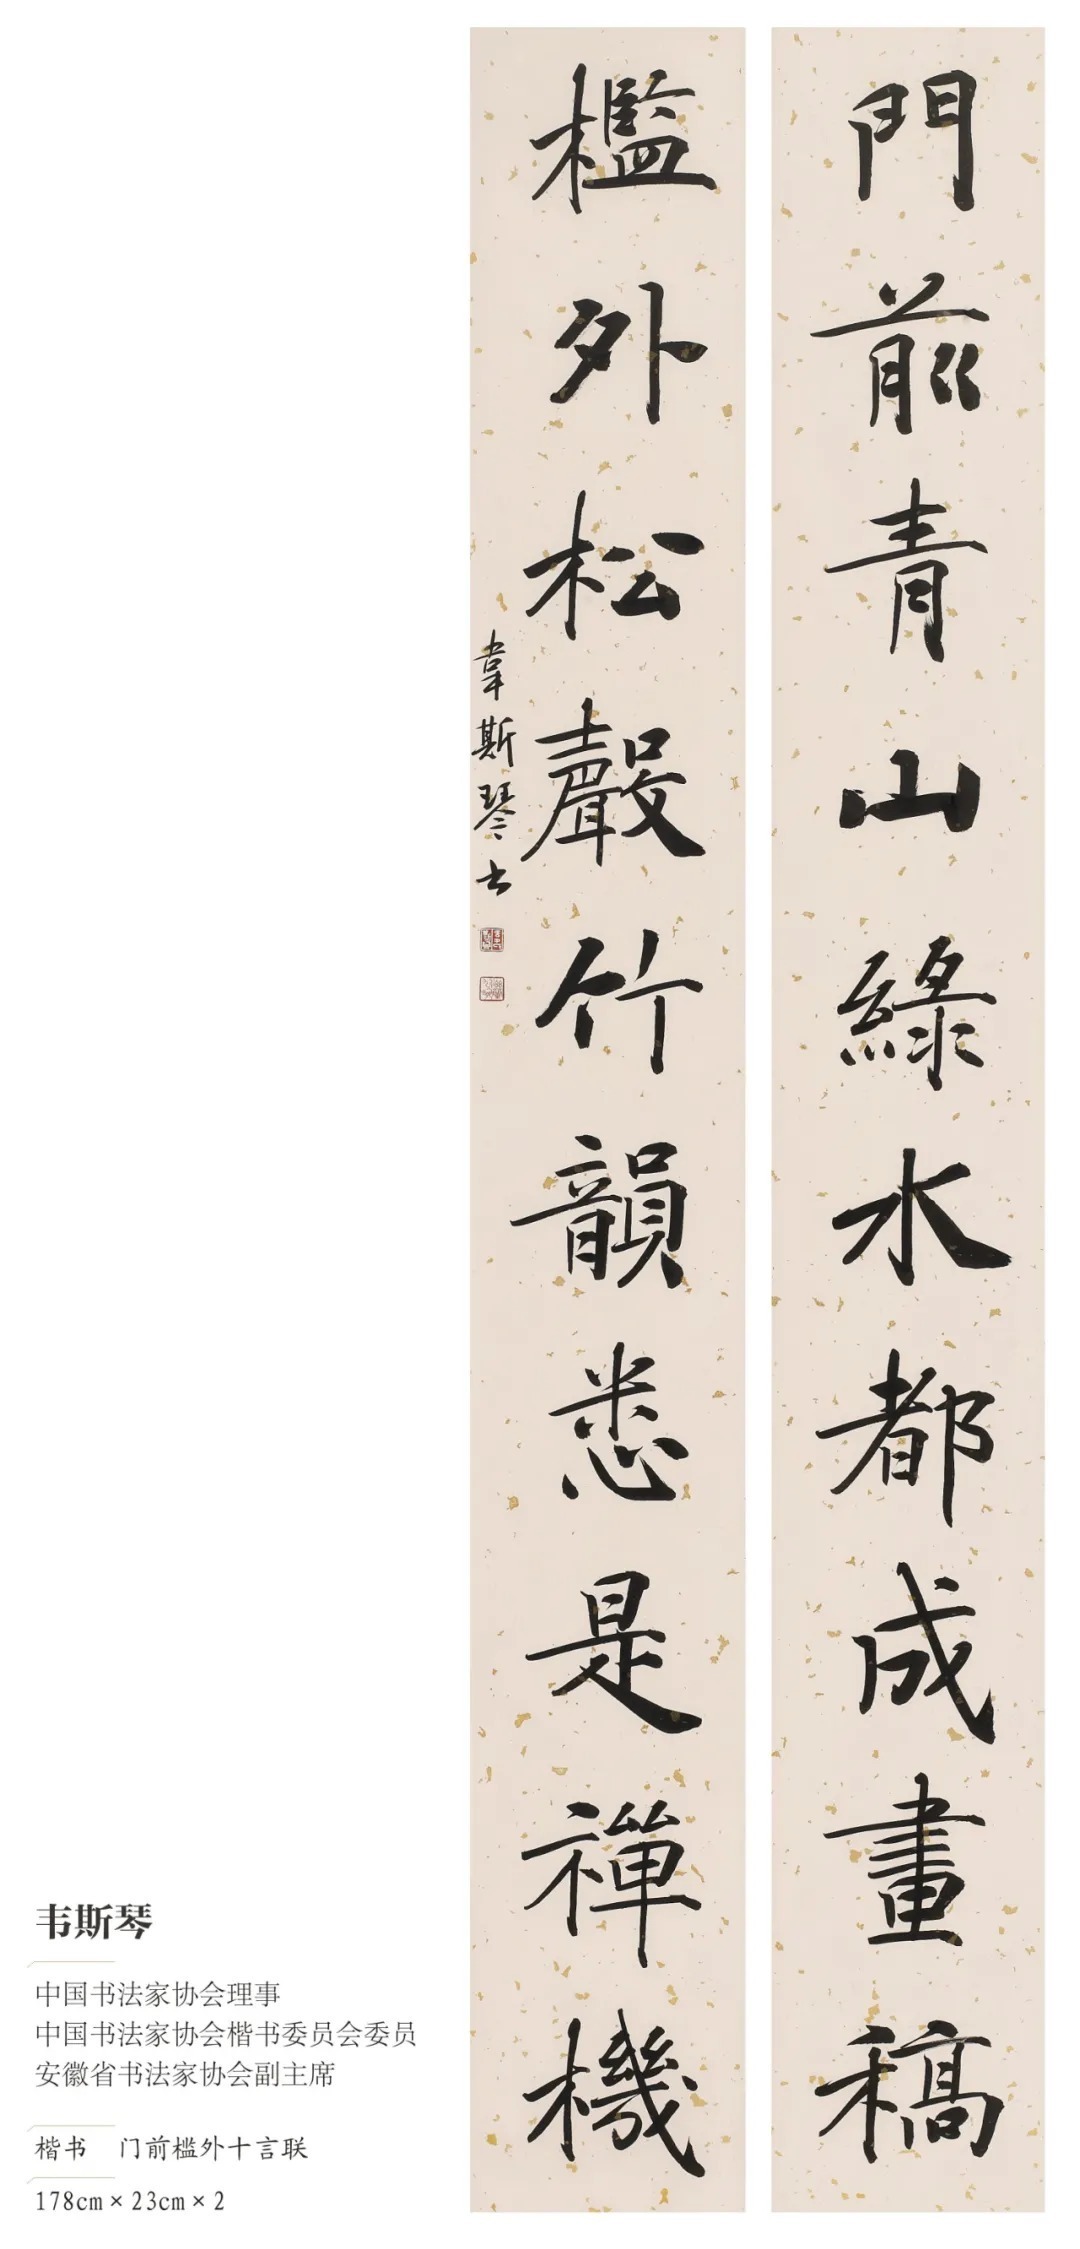 門前青山綠水都成畫稿
檻外松聲竹韻悉是禪機
韋斯琴书
韦斯琴
中国书法家协会理事
中国书法家协会楷书委员会委员
安徽省书法家协会副主席
楷书 门前槛外十言联
178cm×23cm×2